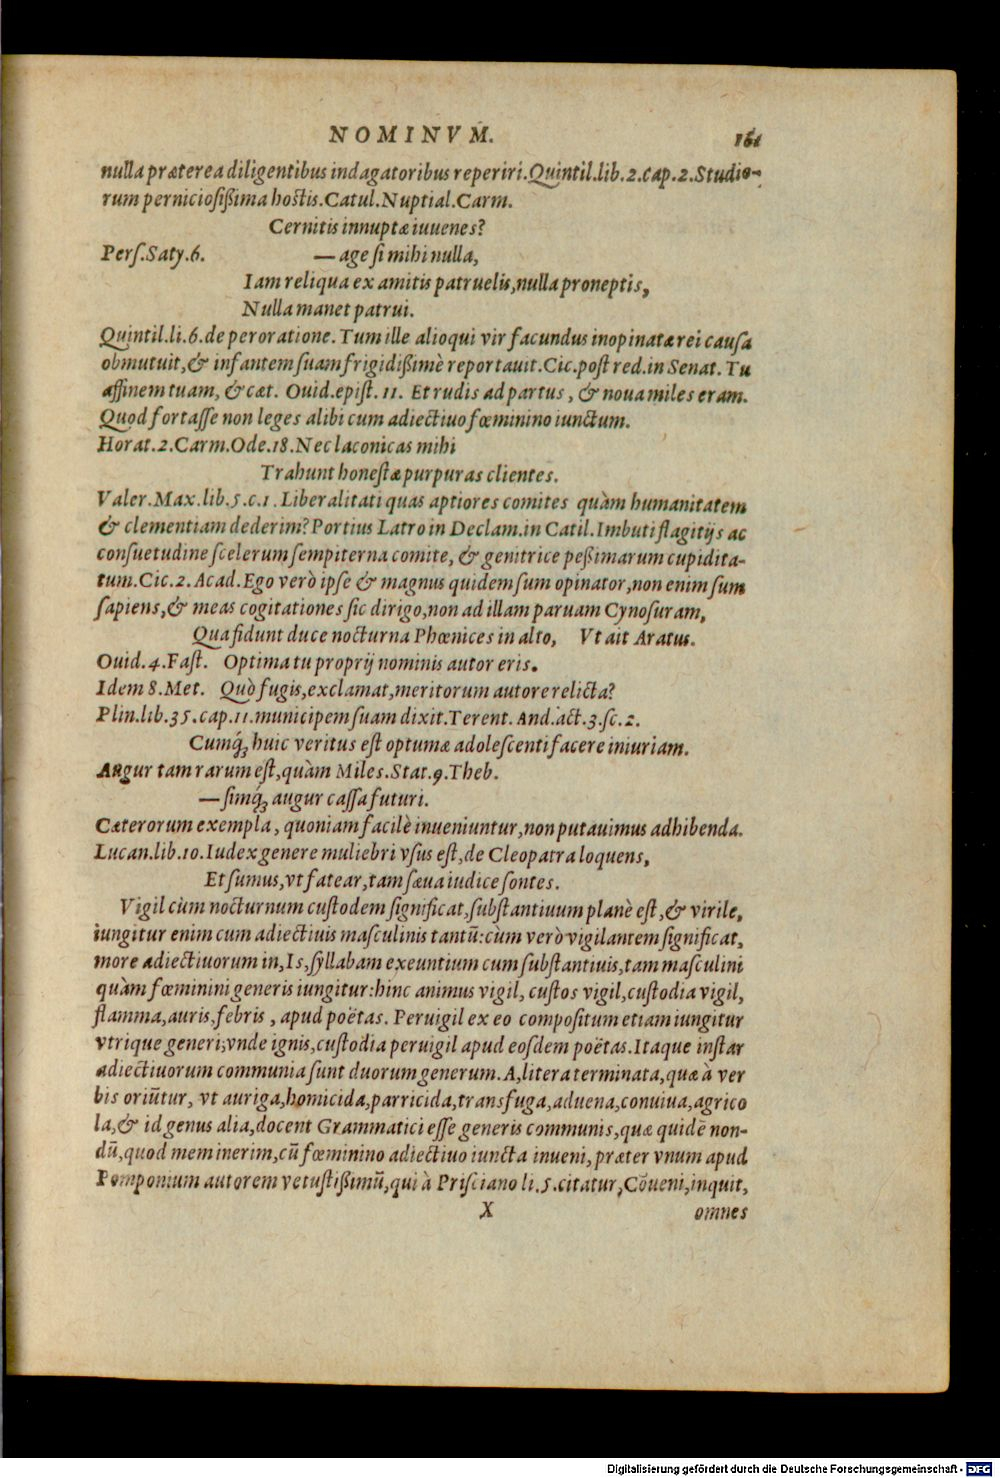 NOMINVM. 161
nulla præterea diligentibus indagatoribus reperiri. Quintil. lib. 2. cap. 2. Studio-
rum perniciosißima hostis. Catul. Nuptial. Carm.
Cernitis innuptæ iuuenes?
Pers. Saty. 6. — age si mihi nulla,
Iam reliqua ex amitis patruelis, nulla proneptis,
Nulla manet patrui.
Quintil. li. 6. de peroratione. Tum ille alioqui vir facundus inopinatæ rei causa
obmutuit, & infantem suam frigidißimè reportauit. Cic. post red. in Senat. Tu
affinem tuam, & cæt. Ouid. epist. 11. Et rudis ad partus, & noua miles eram.
Quod fortasse non leges alibi cum adiectiuo fœminino iunctum.
Horat. 2. Carm. Ode. 18. Nec laconicas mihi
Trahunt honestæ purpuras clientes.
Valer. Max. lib. 5. c. 1. Liberalitati quas aptiores comites quàm humanitatem
& clementiam dederim? Portius Latro in Declam. in Catil. Imbuti flagitijs ac
consuetudine scelerum sempiterna comite, & genitrice peßimarum cupidita-
tum. Cic. 2. Acad. Ego verò ipse & magnus quidem sum opinator, non enim sum
sapiens, & meas cogitationes sic dirigo, non ad illam paruam Cynosuram,
Qua fidunt duce nocturna Phœnices in alto, Vt ait Aratus.
Ouid. 4. Fast. Optima tu proprij nominis autor eris.
Idem 8. Met. Quò fugis, exclamat, meritorum autore relicta?
Plin. lib. 35. cap. 11. municipem suam dixit. Terent. And. act. 3. sc. 2.
Cumq́; huic veritus est optumæ adolescenti facere iniuriam.
Augur tam rarum est, quàm Miles. Stat. 9. Theb.
— simq́; augur cassa futuri.
Cæterorum exempla, quoniam facilè inueniuntur, non putauimus adhibenda.
Lucan. lib. 10. Iudex genere muliebri vsus est, de Cleopatra loquens,
Et sumus, vt fatear, tam sæua iudice sontes.
Vigil cùm nocturnum custodem significat, substantiuum planè est, & virile,
iungitur enim cum adiectiuis masculinis tantũ: cùm verò vigilantem significat,
more adiectiuorum in, Is, syllabam exeuntium cum substantiuis, tam masculini
quàm fœminini generis iungitur: hinc animus vigil, custos vigil, custodia vigil,
flamma, auris, febris, apud poëtas. Peruigil ex eo compositum etiam iungitur
vtrique generi; vnde ignis, custodia peruigil apud eosdem poëtas. Itaque instar
adiectiuorum communia sunt duorum generum. A, litera terminata, quæ à ver
bis oriũtur, vt auriga, homicida, parricida, transfuga, aduena, conuiua, agrico
la, & id genus alia, docent Grammatici esse generis communis, quæ quidẽ non-
dũ, quod meminerim, cũ fœminino adiectiuo iuncta inueni, præter vnum apud
Pomponium autorem vetustißimũ, qui à Prisciano li. 5. citatur, Cõueni, inquit,
X omnes
Digitalisierung gefördert durch die Deutsche Forschungsgemeinschaft - DFG